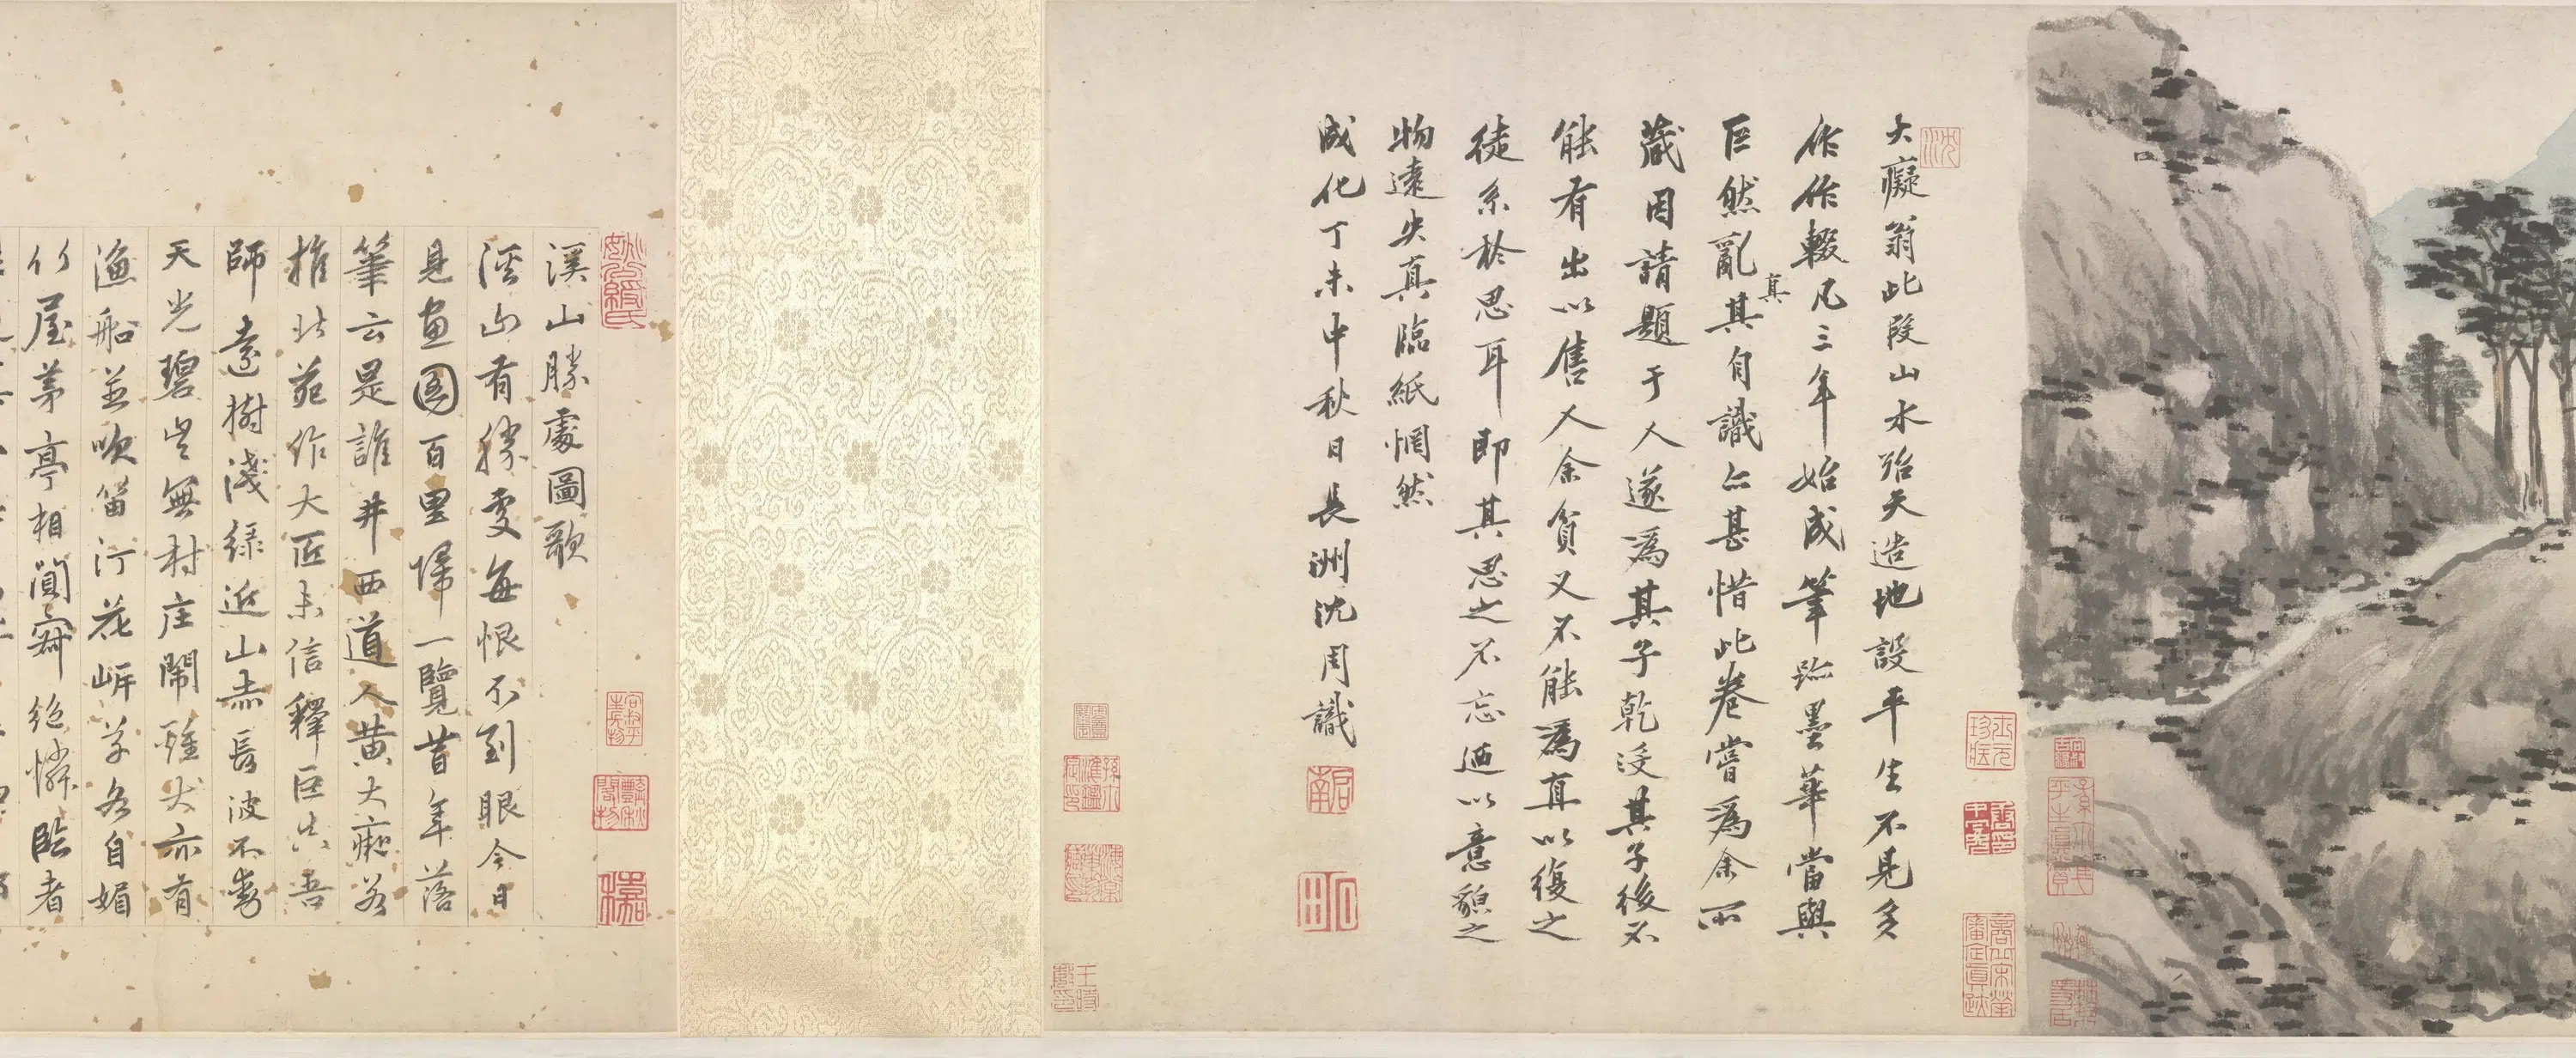 大癡翁此段山水殆天造地設平生不見多
作作輟凡三年始成筆跡墨華當與
巨然亂真其自識亦甚惜此卷嘗為余所
藏因請題于人遂為其子乾沒其子後不
能有出以售人余貧又不能為直以復之
徒系於思耳即其思之不忘迺以意貌之
物遠失真臨紙惘然
成化丁未中秋日長洲沈周識
溪山勝處圖歌
溪山有勝處每恨不到眼今日
見畫圖百里歸一覽昔年落
筆云是誰井西道人黃大癡
推北苑作大匠未信釋巨然吾
師遠樹淺綠近山赤長波不動
天光碧豈無村庄鬧雞犬亦有
漁船並吹笛汀花岍草各自媚
竹屋茅亭相閴寂絕憐臨者